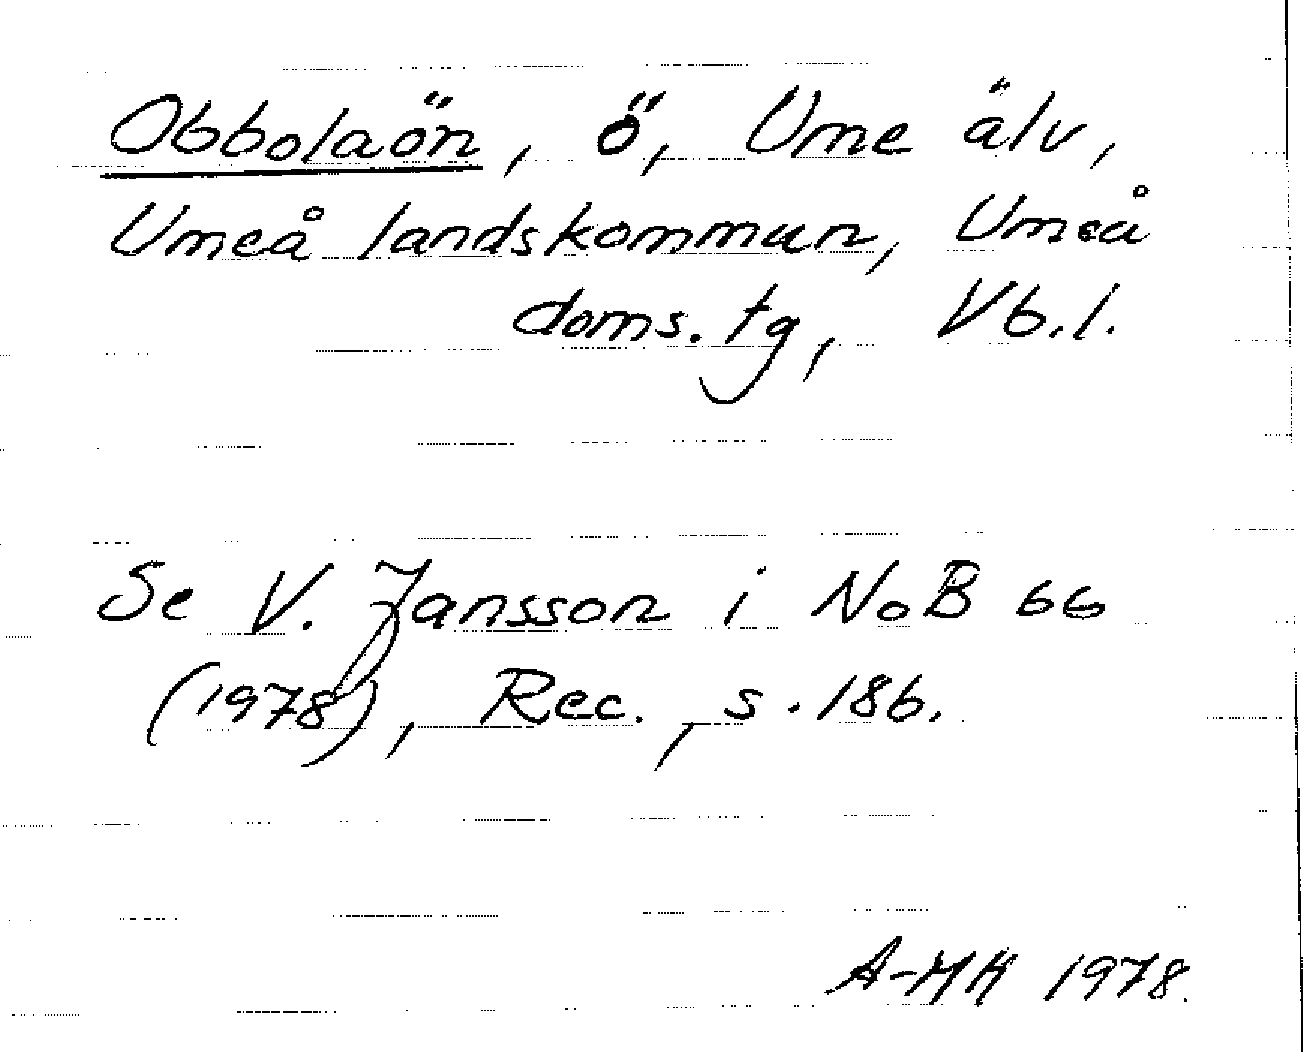 Obbolaön, ö, Ume älv,
Umeå landskommun, Umeå
doms. tg, Vb. l.
Se V. Jansson i NoB 66
(1978), Rec., s. 186.
A-MH 1978.